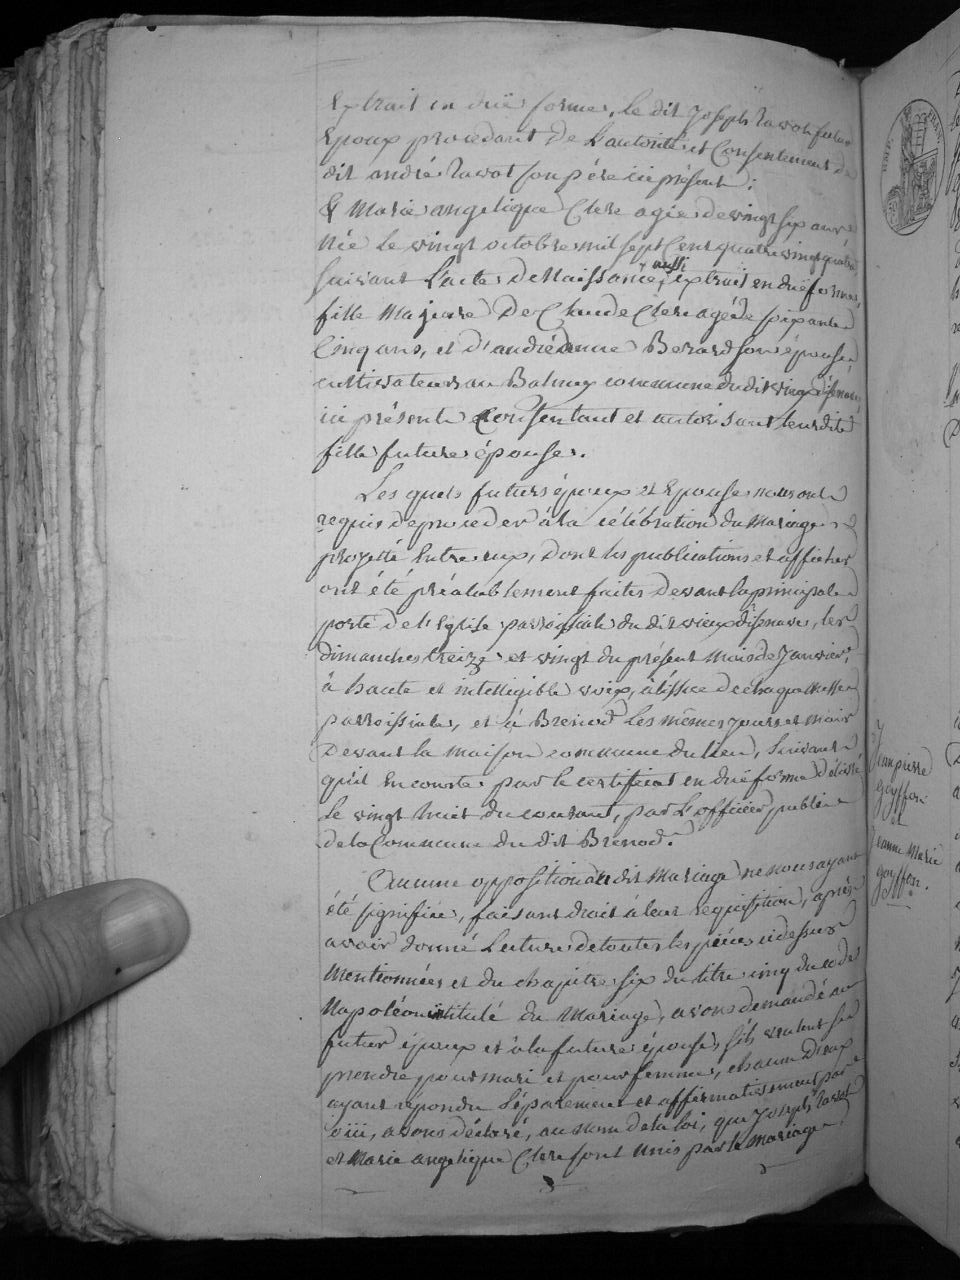 Extrait en duë forme, le dit Joseph Ravot futur
Epoux procedant de L'autorité et Consentement du
dit andré Ravot son père ici présent;
Et Marie angelique Clerc agée de vingt six ans
Née le vingt octobre mil sept Cent quatre vingt quatre
suivant L'acte de Naissance, aussi extrait en duë forme,
fille Majeure De Claude Clerc agé de soixante
Cinq ans, et d'andréanne Berard son épouse
cultivateurs au Balmay commune du dit vieux d'isenave,
ici présents Consentant et autorisant leur dite
fille future épouse.
Les quels futurs époux et Epouse nous ont
requis de proceder à la célébration du Mariage
projetté Entre eux, dont les publications et affiches
ont été préalablement faites devant la principale
porte de l'Eglise parroissiale du dit vieux d'isenave, les
dimanches treize et vingt du présent Mois de Janvier,
à haute et intelligible voix, à l'issue de chaque Messe
parroissiale, et à Brenod les mêmes jours et mois
Devant la maison commune du lieu, suivant
qu'il En conste par le certificat en duë forme délivré
le vingt huit du courant, par L'officier public
de la Commune du dit Brenod.
Aucune opposition au dit Mariage ne nous ayant
été signifiée, faisant droit à leur requisition, après
avoir donné Lecture de toutes les pièces ci dessus
Mentionnées et du chapitre six du titre cinq du code
Napoléon intitulé du Mariage, avons demandé au
futur époux et à la future épouse, s'ils veulent se
prendre pour mari et pour femme, chacun d'eux
ayant répondu séparement et affirmativement par
oui, avons déclaré, au nom de la loi, que Joseph Ravot
et Marie angelique Clerc sont Unis par le Mariage
Jeanpierre
goyffon
et
Jeanne Marie
goyffon.